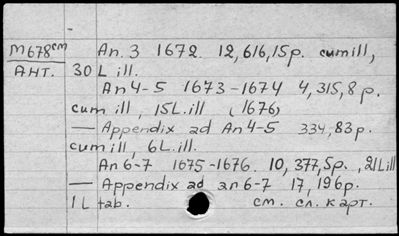 М678см An. 3 1672. 12,616,15p. cum ill,
АНТ. 30 L ill.
An 4-5 1673-1674 4,315,8p.
cum ill, 15L.ill (1676)
— Appendix ad An 4-5 334,83p.
cum ill, 6L.ill.
An 6-7 1675-1676. 10, 377,5p., 21L ill
— Appendix ad an 6-7 17, 196p.
1 L tab. см. сл. карт.